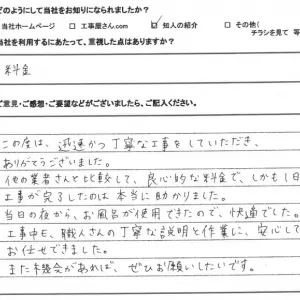 どのようにして当社をお知りになられましたか？
当社ホームページ □ 工事屋さん.com ☑ 知人の紹介 □ その他（
チラシを見て 等
当社を利用するにあたって、重視した点はありますか？
料金
ご意見・ご感想・ご要望などがございましたら、ご記入ください。
この度は、迅速かつ丁寧な工事をしていただき、
ありがとうございました。
他の業者さんと比較して、良心的な料金で、しかも1日
工事が完了したのは本当に助かりました。
当日の夜から、お風呂が使用できたので、快適でした。
工事中も、職人さんの丁寧な説明と作業に、安心して
お任せできました。
また機会があれば、ぜひお願いしたいです。